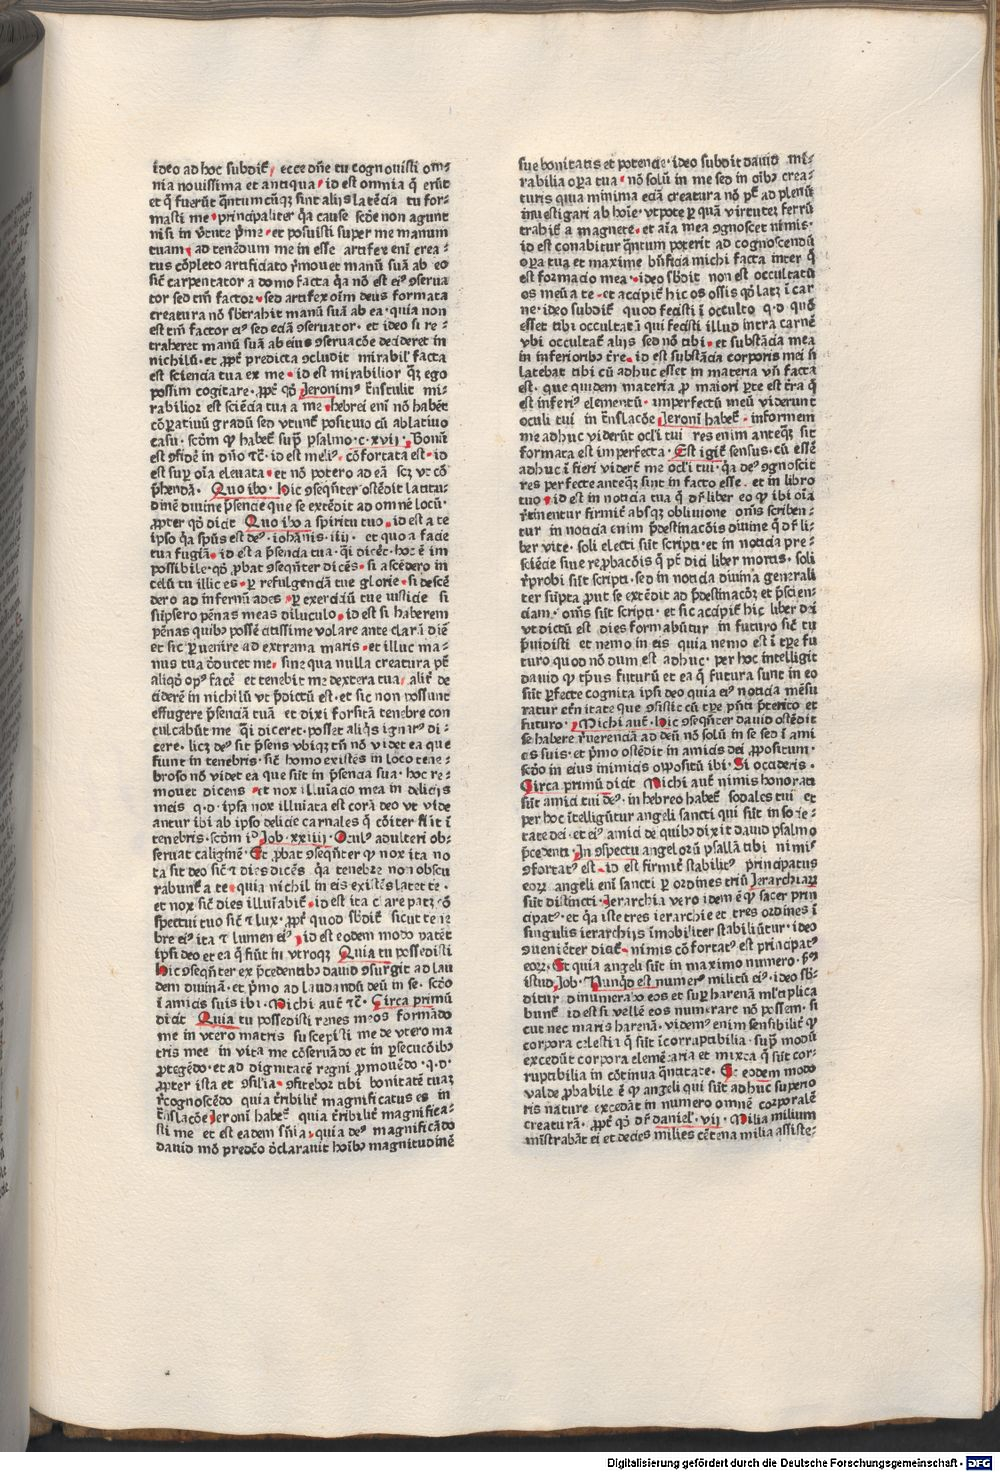 ideo ad hoc subdit̄ / ecce dn̄e tu cognouisti om⸗
nia nouissima et antiqua · id est omnia q̄ erūt
et q̄ fuerūt q̄ntumcūqȝ sint alijs latēcia tu for⸗
masti me · principaliter q̄a cause scd̄e non agunt
nisi in v̄tute p̄me · et posuisti super me manum
tuam ad tenēdum me in esse artifex eni crea⸗
tus cōpleto artificiato r̄mouet manū suā ab eo
sic̄ carpentator a domo facta q̄a nō est eiꝰ ꝯserua
tor sed tm̄ factor · sed artifex oīm deus formata
creatura nō sb̄trahit manū suā ab ea · quia non
est tm̄ factor eiꝰ sed eciā ꝯseruator · et ideo si re⸗
traheret manū suā ab eius ꝯseruacōe decideret in
nichilū · et ꝓpt̄ predicta ꝯcludit mirabil' facta
est sciencia tua ex me · id est mirabilior q̄ȝ ego
possim cogitare · ꝓpt̄ qd̄ Jeronimꝰ t̄nstulit mi⸗
rabilior est sciēcia tua a me · hebrei eni nō habēt
cōparatiuū gradū sed vtunt̄ positiuo cū ablatiuo
casu · scd̄m ꝙ habet̄ sup̄ psalmo · c · xvij · Bonū
est ꝯfide in dn̄o tc̄ · id est meliꝰ · cōfortata est · id
est suꝑ oīa eleuata · et nō potero ad eā scȝ vt cō
p̄hendā · Quo ibo · hic ꝯseq̄nter ostēdit latitu⸗
dinē diuine p̄sencie que se extēdit ad omnē locū ·
ꝓpter qd̄ dicit Quo ibo a spiritu tuo · id est a te
ipso q̄a spūs est deꝰ · iohānis · iiij · et quo a facie
tua fugiā · id est a p̄sencia tua · q̄i dicet̄ · hoc ē im
possibile · qd̄ ꝓbat ꝯseq̄nter dicēs · si ascēdero in
celū tu illic es · ꝑ refulgenciā tue glorie · si descē
dero ad infernū ades · ꝑ exerciciū tue iusticie si
sūpsero pēnas meas diluculo · id est si haberem
pēnas quibꝰ possē citissime volare ante clarā diē
et sic ꝑuenire ad extrema maris · et illuc ma⸗
nus tua d̄ducet me · sine qua nulla creatura pt̄
aliqd̄ opꝰ facē et tenebit me dextera tua / alit̄ de
ciderē in nichilū vt p̄dictū est · et sic non possunt
effugere p̄senciā tuā et dixi forsitā tenebre con
culcabūt me q̄i diceret · posset aliq̄s ignarꝰ di⸗
cere · licȝ deꝰ sit p̄sens vbiqȝ tn̄ nō videt ea que
fiunt in tenebris · sic̄ homo existēs in loco tene⸗
broso nō videt ea que sūt in p̄sencia sua · hoc re⸗
mouet dicens · et nox illuīacio mea in delicijs
meis q · d · ipsa nox illuīata est corā deo vt vide
antur ibi ab ipso delicie carnales q̄ cōiter fiūt ī
tenebris · scd̄m id Job · xxiiij · Oculꝰ adulteri ob⸗
seruat caliginē · Et ꝓbat ꝯseq̄nter ꝙ nox ita no
ta sit deo sic̄ t dies dicēs q̄a tenebre non obscu
rabunt̄ a te · quia nichil in eis existēs latet te ·
et nox sic̄ dies illuīabit̄ · id est ita clare patȝ ꝯ
spectui tuo sic̄ t lux · ꝓpt̄ quod sb̄dit̄ sicut tene
bre eiꝰ ita t lumen eiꝰ · id est eodem modo patēt
ipsi deo et ea q̄ fiūt in vtroqȝ Quia tu possedisti
hic ꝯseq̄nter ex p̄cedentibꝰ dauid ꝯsurgit ad lau
dem diuinā · et p̄mo ad laudandū deū in se · scd̄o
ī amicis suis ibi · Michi aut̄ tc̄ · Circa primū
dicit Quia tu possedisti renes meos formādo
me in vtero matris suscepisti me de vtero ma
tris mee in vita me cōseruādo et in ꝑsecucōibꝰ
ꝓtegēdo · et ad dignitatē regni ꝓmouēdo · q · d ·
ꝓpter ista et ꝯsil'ia · ꝯfitebor tibi bonitatē tuaȝ
r̄cognoscēdo quia t̄ribilit̄ magnificatus es in
t̄nslacōe Jeroni habet̄ quia t̄ribilit̄ magnifica⸗
sti me et est eadem sn̄ia · quia deꝰ magnificādo
dauid mō predc̄o d̄clarauit hoībꝰ magnitudinē
sue bonitatis et potencie · ideo subdit dauid mi⸗
rabilia oꝑa tua · nō solū in me sed in oībꝰ crea⸗
turis quia minima eciā creatura nō pt̄ ad plenū
inuestigari ab hoīe · vtpote ꝑ quā virtuteȝ ferrū
trahit̄ a magnete · et aīa mea ꝯgnoscet nimis ·
id est conabitur q̄ntum poterit ad cognoscendū
oꝑa tua et maxime bn̄ficia michi facta inter q̄
est formacio mea · ideo sb̄dit non est occultatū
os meū a te · et accipit̄ hic os ossis qd̄ latȝ ī car
ne · ideo subdit̄ quod fecisti ī occulto q · d quō
esset tibi occultatū qui fecisti illud intra carnē
vbi occultat̄ alijs sed nō tibi · et substācia mea
in inferioribꝰ t̄re · id est substācia corporis mei si
latebat tibi cū adhuc esset in materia vn̄ facta
est · que quidem materia ꝓ maiori ꝑte est t̄ra q̄
est inferiꝰ elementū · imperfectū meū viderunt
oculi tui in t̄nslacōe Jeroni habet̄ · informem
me adhuc viderūt ocl'i tui res enim anteqȝ sit
formata est imperfecta · Est igit̄ sensus · cū essē
adhuc ī fieri viderēt me ocl'i tui · q̄a deꝰ ꝯgnoscit
res perfecte anteqȝ sunt in facto esse · et in libro
tuo · id est in noticia tua q̄ dr̄ liber eo ꝙ ibi oīa
r̄tinentur firmit̄ absqȝ obliuione om̄s scriben⸗
tur in noticia enim p̄destinacōis diuine q̄ dr̄ li⸗
ber vite · soli electi sūt scripti · et in noticia pre⸗
sciēcie siue reꝓbacōis q̄ pt̄ dici liber mortis · soli
r̄probi sūt scripti · sed in noticia diuina generali
ter sūpta ꝓut se extēdit ad p̄destinacōȝ et p̄scien⸗
ciam · om̄s sūt scripti · et sic accipit̄ hic liber dei
vt dictū est dies formabūtur in futuro sic̄ tu
p̄uidisti et nemo in eis quia nemo est ī tꝑe fu
turo quod nō dum est adhuc · per hoc intelligit
dauid ꝙ tp̄us futurū et ea q̄ futura sunt in eo
sūt ꝑfecte cognita ipsi deo quia eiꝰ noticia mēsu
ratur et̄nitate que ꝯsistit cū tꝑe pn̄ti p̄terito et
futuro · Michi aut̄ · hic ꝯseq̄nter dauid ostēdit
se habere r̄uerenciā ad deū nō solū in se sed ī ami
cis suis · et p̄mo ostēdit in amicis dei ꝓpositum ·
scd̄o in eius inimicis oppositū ibi · Si occideris ·
Circa primū dicit Michi aut̄ nimis honorati
sūt amici tui deꝰ · in hebreo habet̄ sodales tui et
per hoc ītelligūtur angeli sancti qui sūt in socie⸗
tate dei · et eiꝰ amici de quibꝰ dixit dauid psalmo
p̄cedenti · In ꝯspectu angelorū psallā tibi nimiꝰ
ꝯfortatꝰ est · id est firmit̄ stabilitꝰ principatus
eoȝ angeli eni sancti ꝑ ordines triū Jerarchiaȝ
sūt distincti · Jerarchia vero idem ē ꝙ sacer prin
cipatꝰ · et q̄a iste tres ierarchie et tres ordines ī
singulis ierarchijs īmobiliter stabiliūtur · ideo
ꝯueniēter dicit̄ · nimis cōfortatꝰ est principatꝰ
eoȝ · Et quia angeli sūt in maximo numero · ẜm
istud Job · Nunq̄d est numerꝰ militū eiꝰ · ideo sb̄⸗
ditur dinumerabo eos et suꝑ harenā ml'tiplica
bunt̄ id est si vellē eos numerare nō possem · si
cut nec maris harenā · videmꝰ enim sensibilit̄ ꝙ
corpora celestia q̄ sūt īcorruptibilia · sup̄ modū
excedūt corpora elemētaria et mixta q̄ sūt cor⸗
ruptibilia in cōtinua q̄ntitate · Et eodem modo
valde ꝓbabile ē ꝙ angeli qui sūt adhuc superio
ris nature excedāt in numero omnē corporalē
creaturā · ꝓpt̄ qd̄ dr̄ daniel' · vij · Milia milium
mīstrabāt ei et decies milies cētena milia assiste⸗
Digitalisierung gefördert durch die Deutsche Forschungsgemeinschaft · DFG